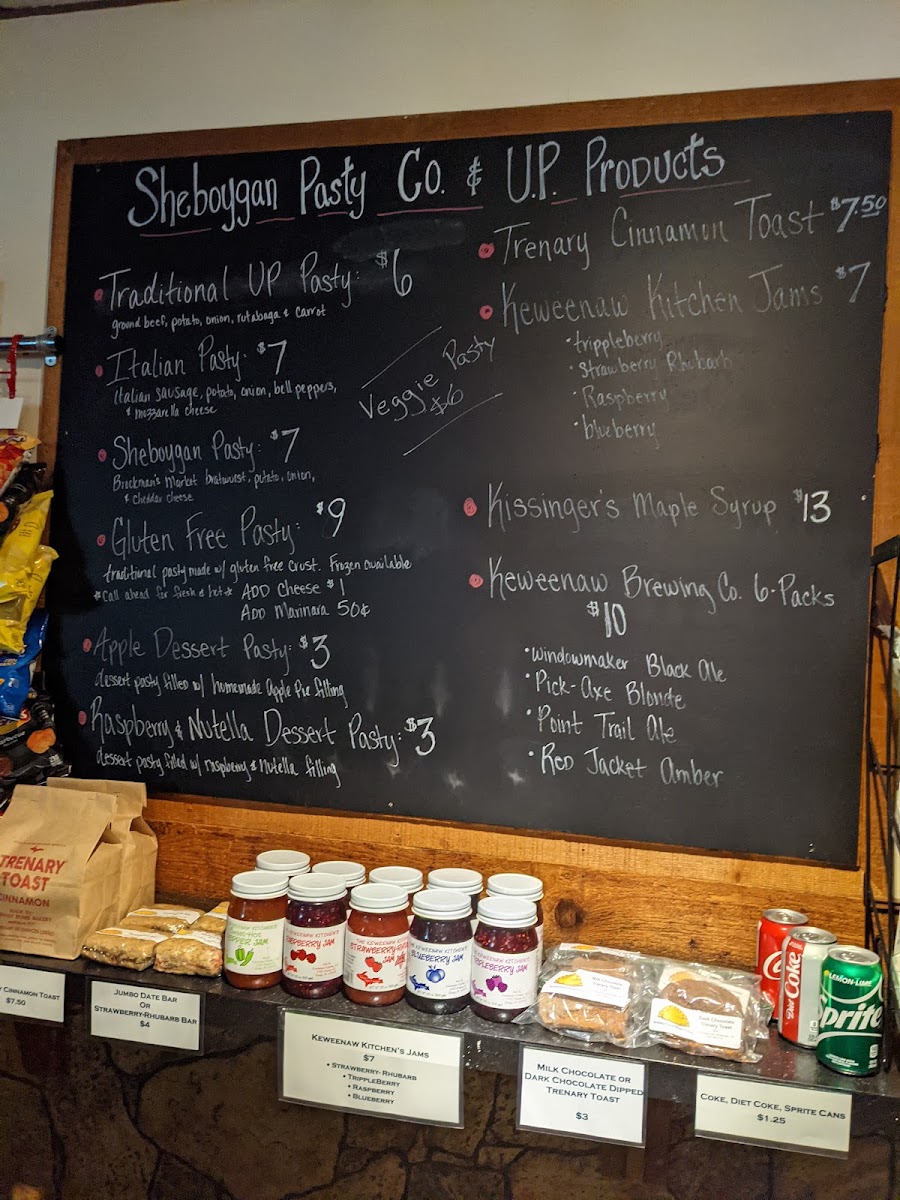 Sheboygan Pasty Co. & U.P. Products
• Traditional UP Pasty: $6
ground beef, potato, onion, rutabaga & carrot
• Italian Pasty: $7
italian sausage, potato, onion, bell peppers,
& mozzarella cheese
• Sheboygan Pasty: $7
Brockman's Market bratwurst, potato, onion,
& cheddar cheese
• Gluten Free Pasty: $9
traditional pasty made w/ gluten free crust. Frozen available
*Call ahead for fresh & hot* ADD Cheese $1
ADD Marinara 50¢
• Apple Dessert Pasty: $3
dessert pasty filled w/ homemade Apple Pie filling
• Raspberry & Nutella Dessert Pasty: $3
dessert pasty filled w/ raspberry & Nutella filling
Veggie Pasty
$6
• Trenary Cinnamon Toast $7.50
• Keweenaw Kitchen Jams $7
• trippleberry
• Strawberry Rhubarb
• Raspberry
• blueberry
• Kissinger's Maple Syrup $13
• Keweenaw Brewing Co. 6-Packs
$10
• Windowmaker Black Ale
• Pick-Axe Blonde
• Point Trail Ale
• Red Jacket Amber
TRENARY
TOAST
CINNAMON
PEPPER JAM
RASPBERRY JAM
THE KEWEENAW KITCHEN'S
STRAWBERRY-RHUBARB
JAM
THE KEWEENAW KITCHEN'S
BLUEBERRY JAM
THE KEWEENAW KITCHEN'S
TRIPPLEBERRY JAM
Milk Chocolate
Trenary Toast
Dark Chocolate
Trenary Toast
Diet Coke
LEMON-LIME
Sprite
Y CINNAMON TOAST
$7.50
JUMBO DATE BAR
OR
STRAWBERRY-RHUBARB BAR
$4
KEWEENAW KITCHEN'S JAMS
$7
• STRAWBERRY- RHUBARB
• TRIPPLEBERRY
• RASPBERRY
• BLUEBERRY
MILK CHOCOLATE OR
DARK CHOCOLATE DIPPED
TRENARY TOAST
$3
COKE, DIET COKE, SPRITE CANS
$1.25